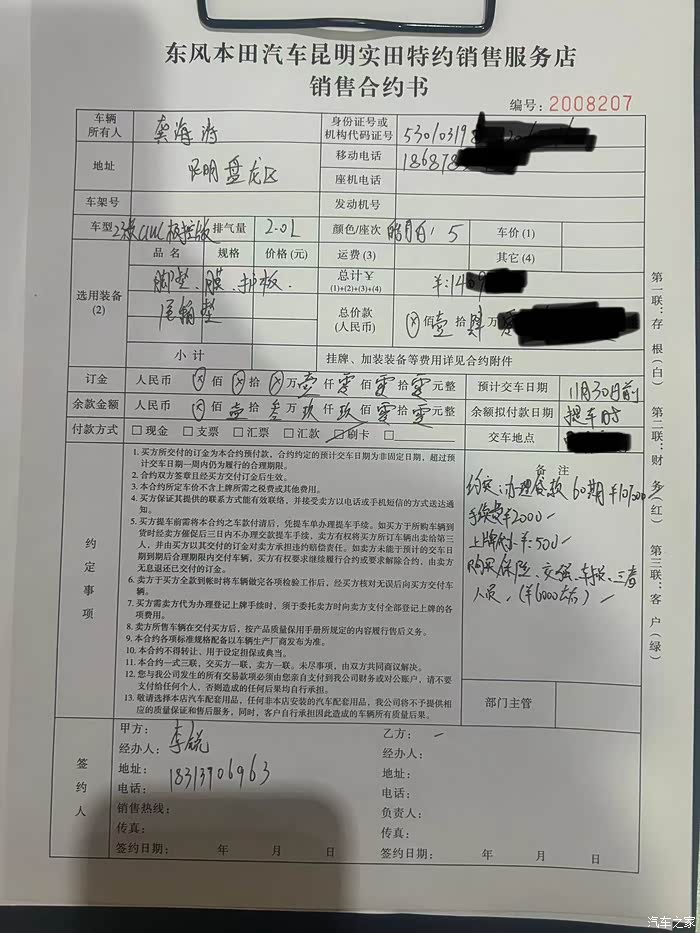 东风本田汽车昆明实田特约销售服务店
销售合约书
编号: 2008207
车辆所有人 龚海涛 身份证号或机构代码证号 530103198
地址 昆明盘龙区 移动电话 186878
座机电话
车架号 发动机号
车型 23款CIVIC极控版 排气量 2.0L 颜色/座次 皓月白: 5 车价(1)
选用装备(2) 品名 规格 价格(元) 运费(3) 其它(4)
脚垫、膜、护板、 总计¥ (1)+(2)+(3)+(4) ¥:14
尾箱垫 总价款(人民币) ⊗佰壹拾肆万
小计 挂牌、加装装备等费用详见合约附件
订金 人民币 ⊗佰⊗拾⊗万壹仟零佰零拾零元整 预计交车日期 11月30日前
余款金额 人民币 ⊗佰壹拾叁万玖仟玖佰零拾零元整 余额拟付款日期 提车时
付款方式 □现金 □支票 □汇票 □汇款 □刷卡 □ 交车地点
约定事项
1. 买方所交付的订金为本合约预付款,合约约定的预计交车日期为非固定日期,超过预
计交车日期一周内仍为履行的合理期限。
2. 合约双方签章且经买方交付订金后生效。
3. 本合约所定车价不含上牌所需之税费或其他费用。
4. 买方保证其提供的联系方式能有效联络,并接受卖方以电话或手机短信的方式送达通
知。
5. 买方提车前需将本合约之车款付清后,凭提车单办理提车手续。如买方于所购车辆到
货时经卖方催促后三日内不办理交款提车手续,卖方有权将买方所订车辆出卖给第三
人,并由买方以其交付的订金对卖方承担违约赔偿责任。如卖方未能于预计的交车日
期到期后合理期限内交付车辆,买方有权要求继续履行合约或要求解除合约,由卖方
无息退还已交付的订金。
6. 卖方于买方全款到帐时将车辆做完各项检验工作后,经买方核对无误后向买方交付
车辆。
7. 买方需卖方代为办理登记上牌手续时,须于委托卖方时向卖方支付全部登记上牌的各
项费用。
8. 卖方所售车辆在交付买方后,按产品质量保用手册所规定的内容履行售后义务。
9. 本合约各项标准规格配备以车辆生产厂商发布为准。
10. 本合约不得转让、用于设定担保或典当。
11. 本合约一式三联,交买方一联,卖方一联。未尽事项,由双方共同商议解决。
12. 您与我公司发生的所有交易款项必须由您亲自支付到我公司财务或对公账户,请不要
支付给任何个人,否则造成的任何后果均自行承担。
13. 敬请选择本店汽车配套用品,任何非本店安装的汽车配套用品,我公司将不予提供相
应的质量保证和售后服务,同时,客户自行承担因此造成的车辆所有质量后果。
备注
约定:办理贷款 60期
手续费¥2000
上牌 ¥:500
购买保险、交强、车损、三者
人员、(¥6000左右)
部门主管
签约人
甲方: 李锐 乙方:
经办人: 经办人:
地址: 地址:
电话: 18313906963 电话:
销售热线: 负责人:
传真: 传真:
签约日期: 年 月 日 签约日期: 年 月 日
第一联:存根(白) 第二联:财务(红) 第三联:客户(绿)
汽车之家